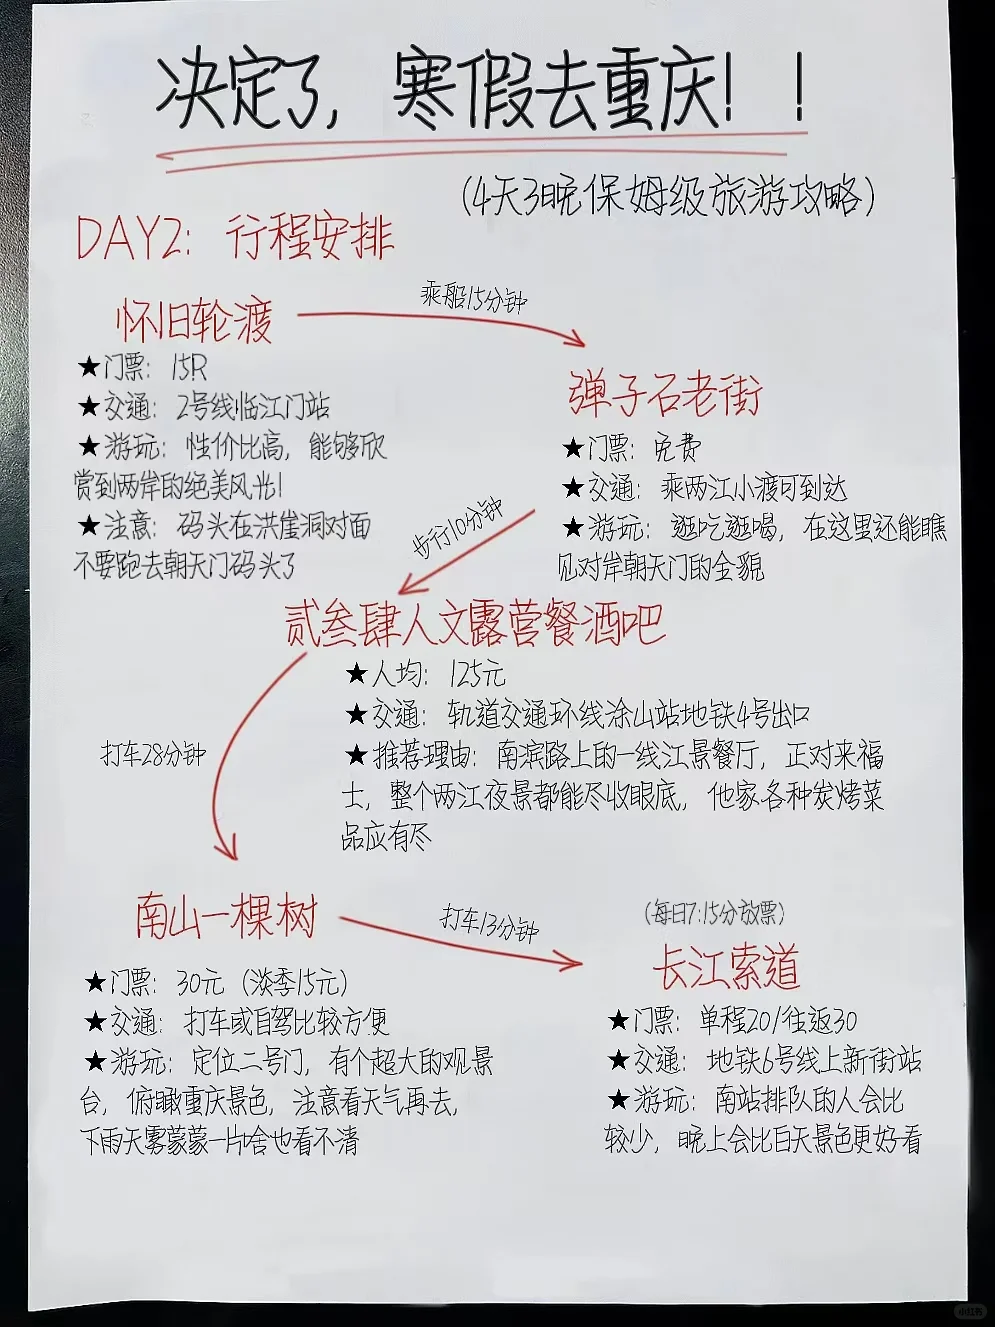 决定了，寒假去重庆！！
（4天3晚保姆级旅游攻略）
DAY2：行程安排
怀旧轮渡
乘船15分钟
★门票：15R
★交通：2号线临江门站
★游玩：性价比高，能够欣
赏到两岸的绝美风光！
★注意：码头在洪崖洞对面
不要跑去朝天门码头了
弹子石老街
★门票：免费
★交通：乘两江小渡可到达
★游玩：逛吃逛喝，在这里还能瞧
见对岸朝天门的全貌
步行10分钟
贰叁肆人文露营餐酒吧
★人均：125元
★交通：轨道交通环线涂山站地铁4号出口
★推荐理由：南滨路上的一线江景餐厅，正对来福
士，整个两江夜景都能尽收眼底，他家各种炭烤菜
品应有尽
打车28分钟
南山一棵树
★门票：30元（淡季15元）
★交通：打车或自驾比较方便
★游玩：定位二号门，有个超大的观景
台，俯瞰重庆景色，注意看天气再去，
下雨天雾蒙蒙一片啥也看不清
打车13分钟
（每日7:15分放票）
长江索道
★门票：单程20/往返30
★交通：地铁6号线上新街站
★游玩：南站排队的人会比
较少，晚上会比白天景色更好看
小红书